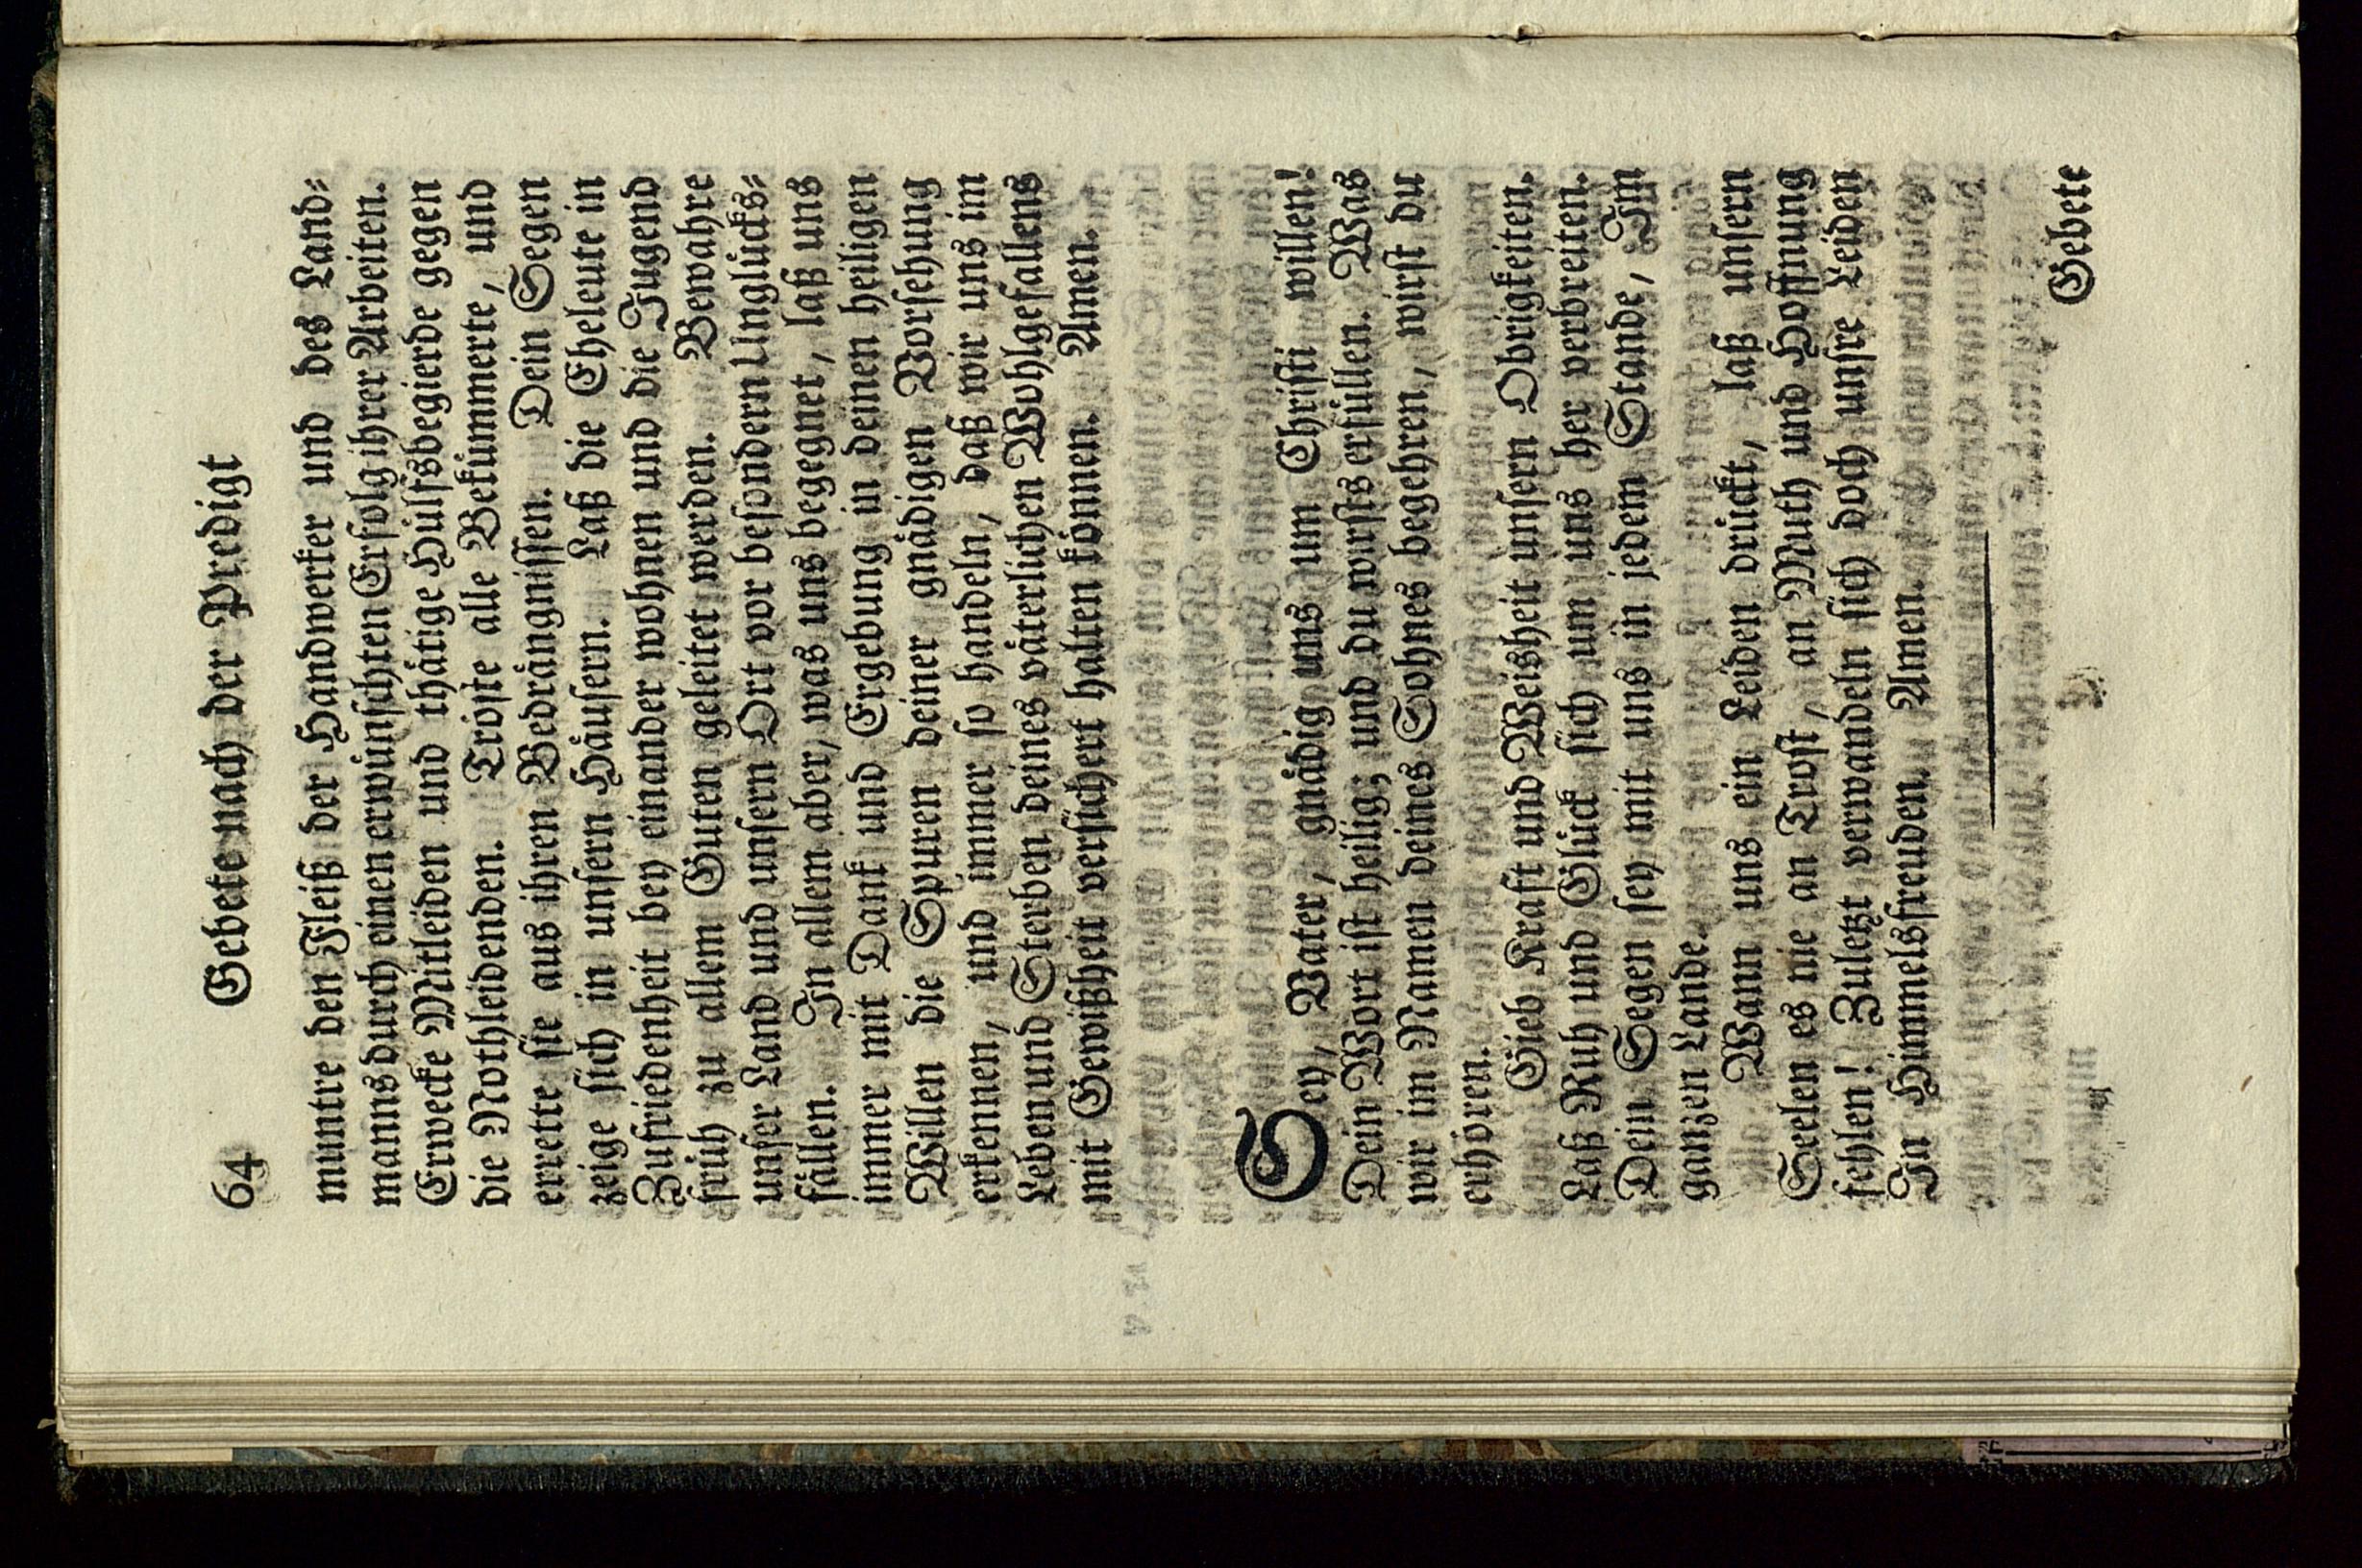 64 Gebete nach der Predigt
muntre den Fleiß der Handwerker und des Land⸗
manns durch einen erwünschten Erfolg ihrer Arbeiten.
Erwecke Mitleiden und thätige Hülfsbegierde gegen
die Nothleidenden. Tröste alle Bekümmerte, und
errette sie aus ihren Bedrängnissen. Dein Segen
zeige sich in unsern Häusern. Laß die Eheleute in
Zufriedenheit bey einander wohnen und die Jugend
früh zu allem Guten geleitet werden. Bewahre
unser Land und unsern Ort vor besondern Unglücks⸗
fällen. In allem aber, was uns begegnet, laß uns
immer mit Dank und Ergebung in deinen heiligen
Willen die Spuren deiner gnädigen Vorsehung
erkennen, und immer so handeln, daß wir uns im
Leben und Sterben deines väterlichen Wohlgefallens
mit Gewißheit versichert halten können. Amen.
Sey, Vater, gnädig uns um Christi willen!
Dein Wort ist heilig; und du wirsts erfüllen. Was
wir im Namen deines Sohnes begehren, wirst du
erhören.
Gieb Kraft und Weisheit unsern Obrigkeiten.
Laß Ruh und Glück sich um uns her verbreiten.
Dein Segen sey mit uns in jedem Stande, Im
ganzen Lande.
Wann uns ein Leiden drückt, laß unsern
Seelen es nie an Trost, an Muth und Hoffnung
fehlen! Zuletzt verwandeln sich doch unsre Leiden
In Himmelsfreuden. Amen.
Gebete